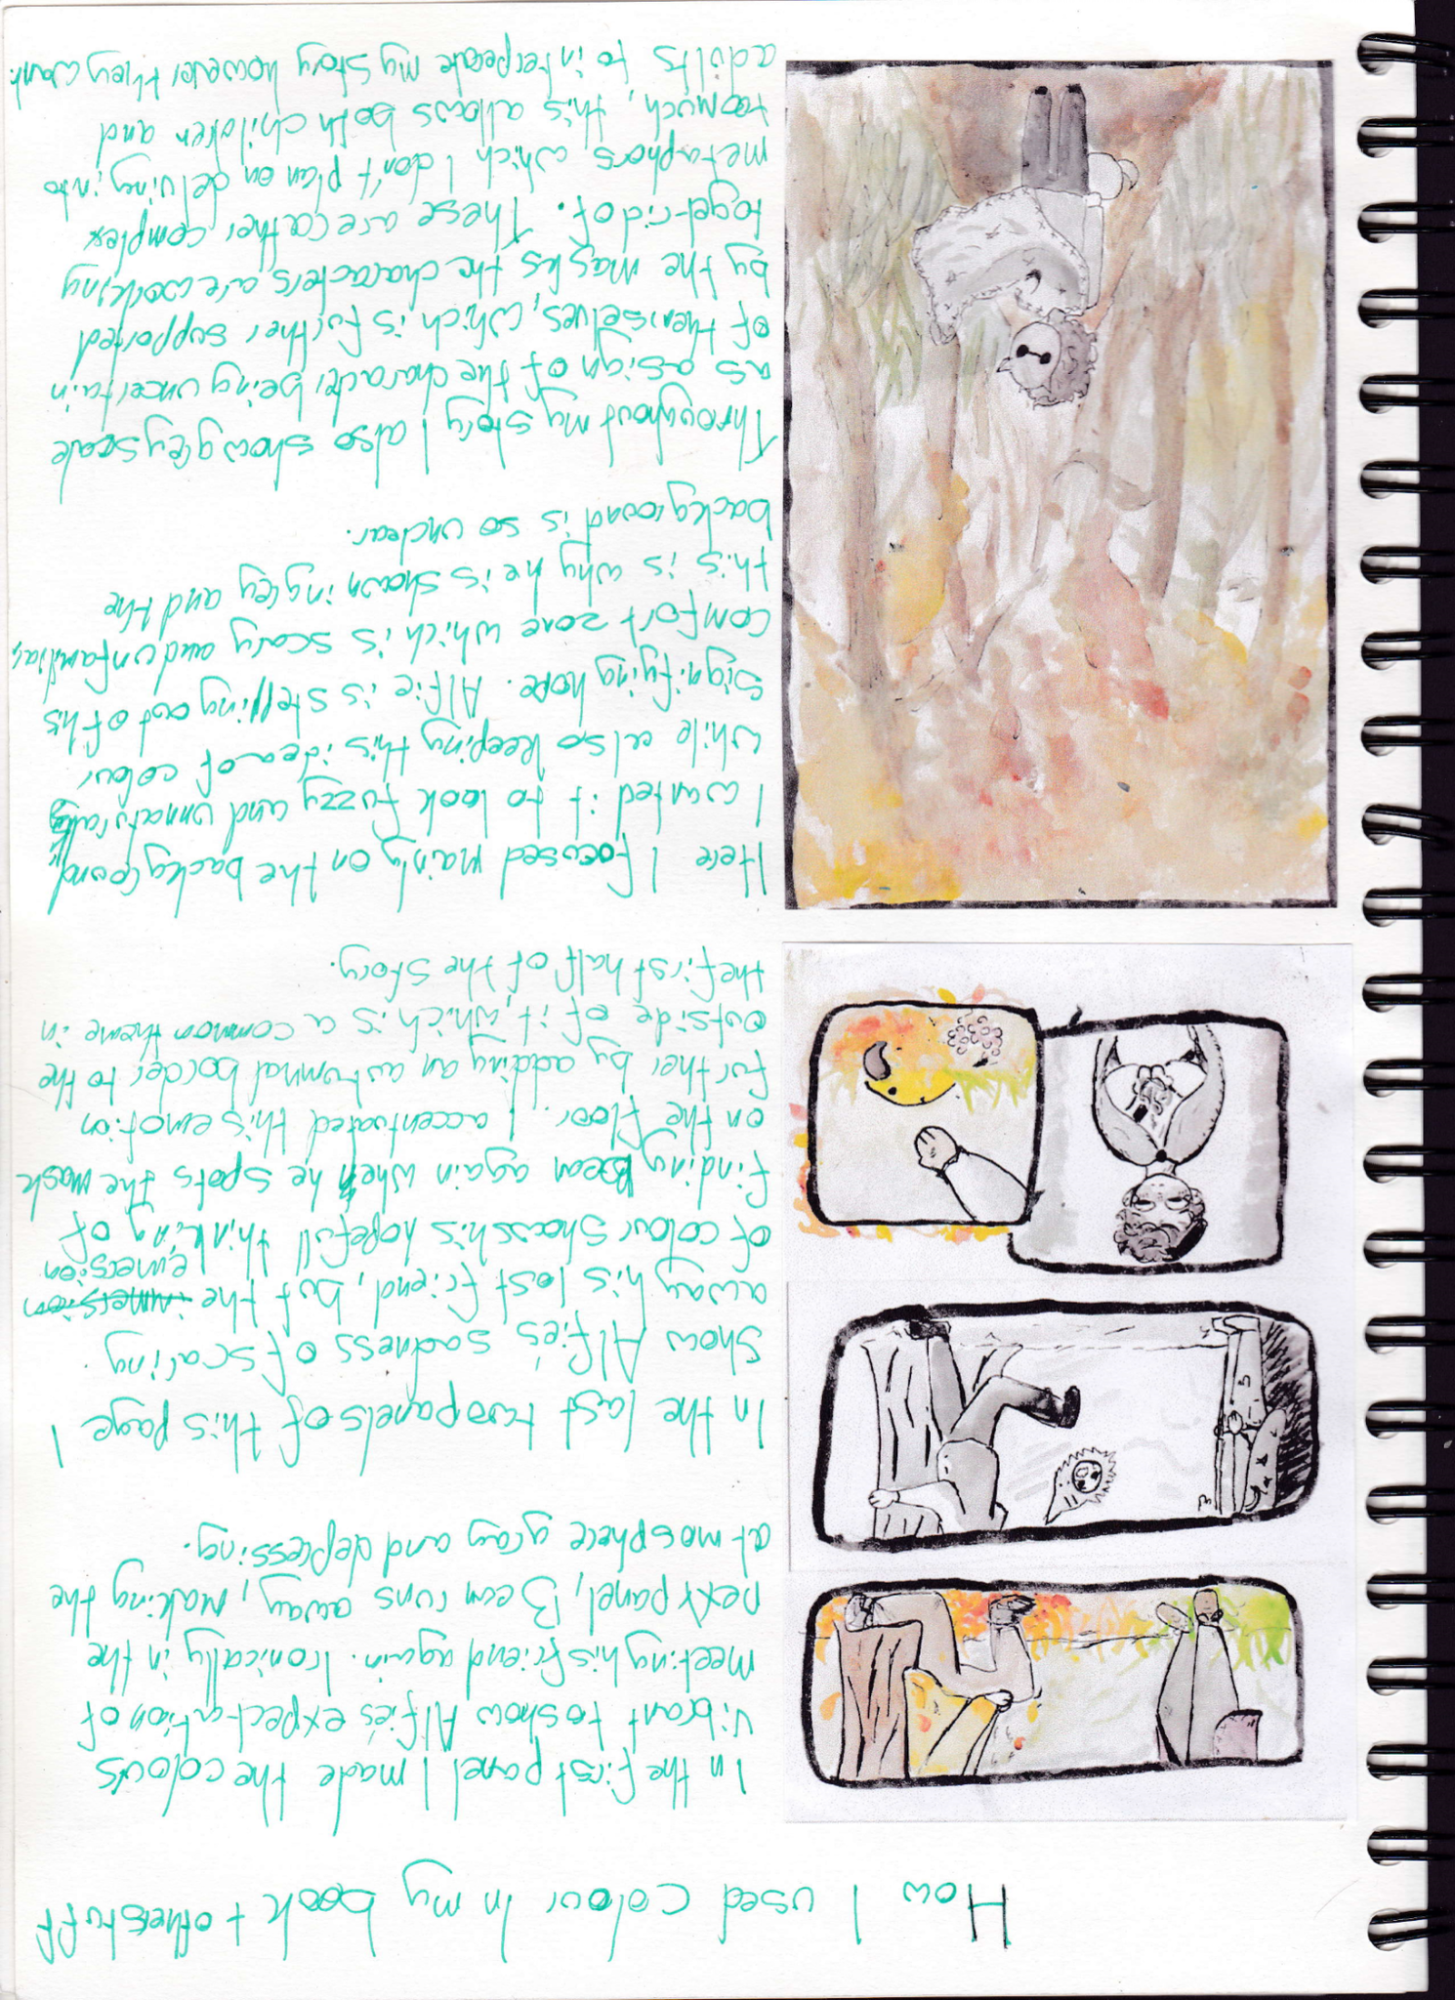 How I used colour in my book + other stuff
In the first panel I made the colours
vibrant to show Alfie's expectation of
meeting his friend again. Ironically in the
next panel, Bean runs away, making the
atmosphere gray and depressing.
In the last two panels of this page I
show Alfie's sadness of scaring
away his lost friend, but the immersion
emersion
of colour shows his hopefull thinking of
finding Bean again when he spots the mask
on the floor. I accentuated this emotion
further by adding an autumnal border to the
outside of it, which is a common theme in
the first half of the story.
Here I focused mainly on the background,
I wanted it to look fuzzy and unnatural
while also keeping this idea of colour
signifying hope. Alfie is stepping out of his
comfort zone which is scary and unfamiliar,
this is why he is shown in grey and the
background is so unclear.
Throughout my story I also show greyscale
as a sign of the character being uncertain
of themselves, which is further supported
by the masks the characters are working
to get rid of. These are rather complex
metaphors which I don't plan on delving into
too much, this allows both children and
adults to interpeate my story however they want.